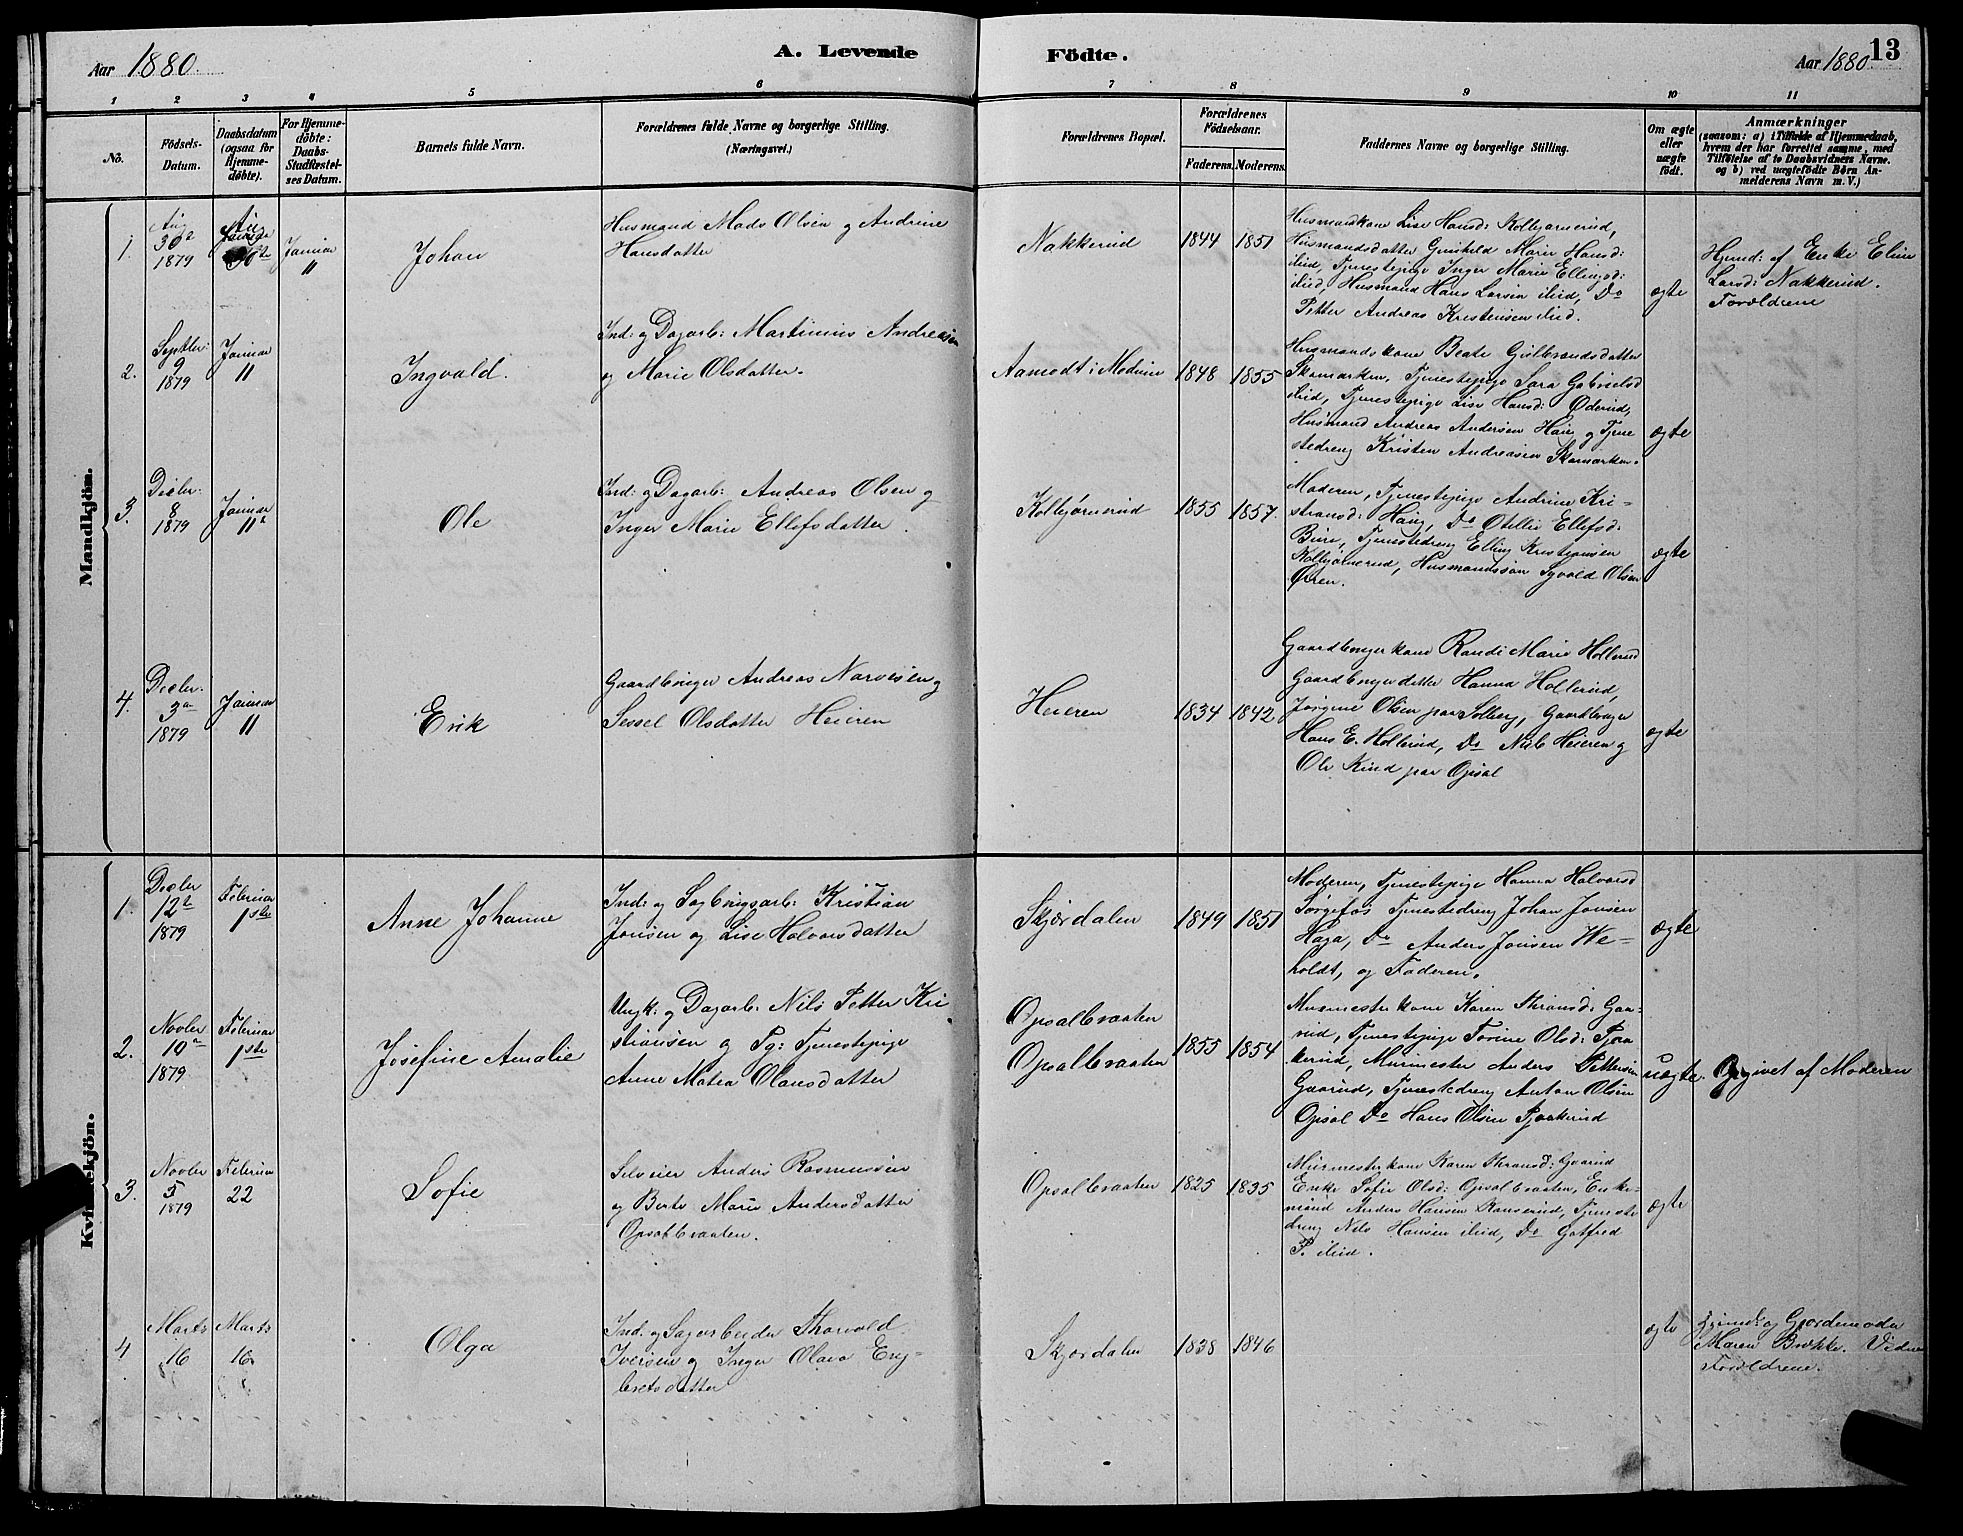 Aar 1880.
A. Levende Födte.
Aar 1880
13
1 2 3 4 5 6 7 8 9 10 11
No.
Födsels-
Datum.
Daabsdatum
(ogsaa for
Hjemme-
döbte).
For Hjemme-
döbte:
Daabs-
Stadfæstel-
ses Datum.
Barnets fulde Navn.
Forældrenes fulde Navne og borgerlige Stilling.
(Næringsvei.)
Forældrenes Bopæl.
Forældrenes
Födselsaar.
Faderens. Moderens.
Faddernes Navne og borgerlige Stilling.
Om ægte
eller
uægte
født.
Anmærkninger
(saasom: a) i Tilfælde af Hjemmedaab,
hvem der har forrettet samme, med
Tilføielse af to Daabsvidners Navne.
og b) ved uægtefödte Börn An-
melderens Navn m. V.)
Mandkjön.
1.
Aug
30
1879
Aug
30te
Januar
11
Johan
Husmand Mads Olsen og Andrine
Hansdatter
Nakkerud
1844
1851
Husmandkone Lise Hansd: Kolbjørnerud,
Husmandsdatter Gunhild Marie Hansd:
ibid, Tjenestepige Inger Marie Ellingsd:
ibid, Husmand Hans Larsen ibid, Do
Petter Andreas Kristensen ibid.
ægte
Hjmd: af Enke Eline
Larsd: Nakkerud.
Forældrene
2.
Septbr:
9
1879
Januar
11
Ingvald.
Ind: og Dagarb: Martinius Andreasen
og Marie Olsdatter.
Aamodt i Modum
1848
1855
Husmandskone Beate Gulbrandsdatter
Skamarken, Tjenestepige Sara Gabrielsd
ibid, Tjenestepige Lise Hansd: Øderud,
Husmand Andreas Andersen Haug og Tjene
stedreng Kristen Andreasen Skamarken.
ægte
3.
Decbr.
8
1879
Januar
11
Ole
Ind: og Dagarb: Andreas Olsen og
Inger Marie Ellefsdatter.
Kolbjørnerud
1855
1857.
Moderen, Tjenestepige Andrine Kri-
stiansd: Haug, Do Otellie Ellefsd:
Bure, Tjenestedreng Elling Kristiansen
Kolbjørnerud, Husmandssøn Syvald Olsen
Øren.
ægte
4.
Decbr.
3
1879
Januar
11
Erik
Gaardbruger Andreas Narvesen og
Sessel Olsdatter Heieren
Heieren
1834
1842
Gaardbrugerkone Randi Marie Hollerud
Gaardbrugerdatter Hanna Hollerud,
Jørgine Olsen paa Solberg, Gaardbruger
Hans E. Hollerud, Do Nils Heieren og
Ole Kind paa Opsal
ægte
Kvindekjön.
1.
Decbr
12te
1879
Februar
1ste
Anne Johanne
Ind: og Sagbrugsarb: Kristian
Jonsen og Lise Halvorsdatter
Skjærdalen
1849
1851
Moderen, Tjenestepige Hanna Halvorsd
Sørgefos Tjenestedreng Johan Jonsen
Haga, Do Anders Jonsen We-
holdt, og Faderen.
ægte
2.
Novbr
10
1879
Februar
1ste
Josefine Amalie
Ungk: og Dagarb: Nils Petter Kri
stiansen og Pg: Tjenestepige
Anne Matea Olausdatter
Opsalbraaten
Opsalbraaten
1855
1854
Murmesterkone Karen Thronsd: Gaa-
rud, Tjenestepige Torine Olsd: Pjaa-
kerud, Murmester Anders Pettersen
Gaarud, Tjenestedreng Anton Olsen
Opsal Do Hans Olsen Pjaakerud
uægte.
Opgivet af Moderen
3.
Novbr
5
1879
Februar
22
Sofie
Selveier Anders Rasmussen
og Berte Marie Andersdatter
Opsalbraaten.
Opsalbraaten
1825
1835
Murmesterkone Karen Thronsd: Gaarud
Enke Sofie Olsd: Opsalbraaten, Enke-
mand Anders Hansen Ranserud, Tjeneste
dreng Nils Hansen ibid, Do Gotfred
P. ibid.
ægte
4
Marts
16
Marts
16
Olga
Ind. og Sagarbeider Thorvald
Iversen og Inger Olava Eng-
bretsdatter
Skjærdalen
1838
1846
ægte
Hjmd: og Gjordemoder
Maren Brække. Vidne
Forældrene.